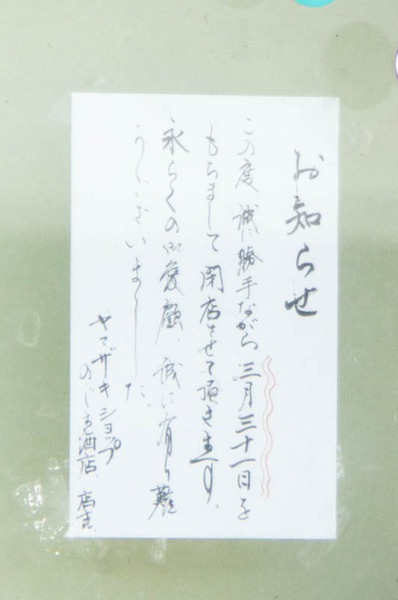 お知らせ
この度 誠に勝手ながら 三月三十一日を
もちまして 閉店させて頂きます。
永らくの御愛顧、誠に有り難
うございました。
ヤマザキショップ
のじま酒店 店主